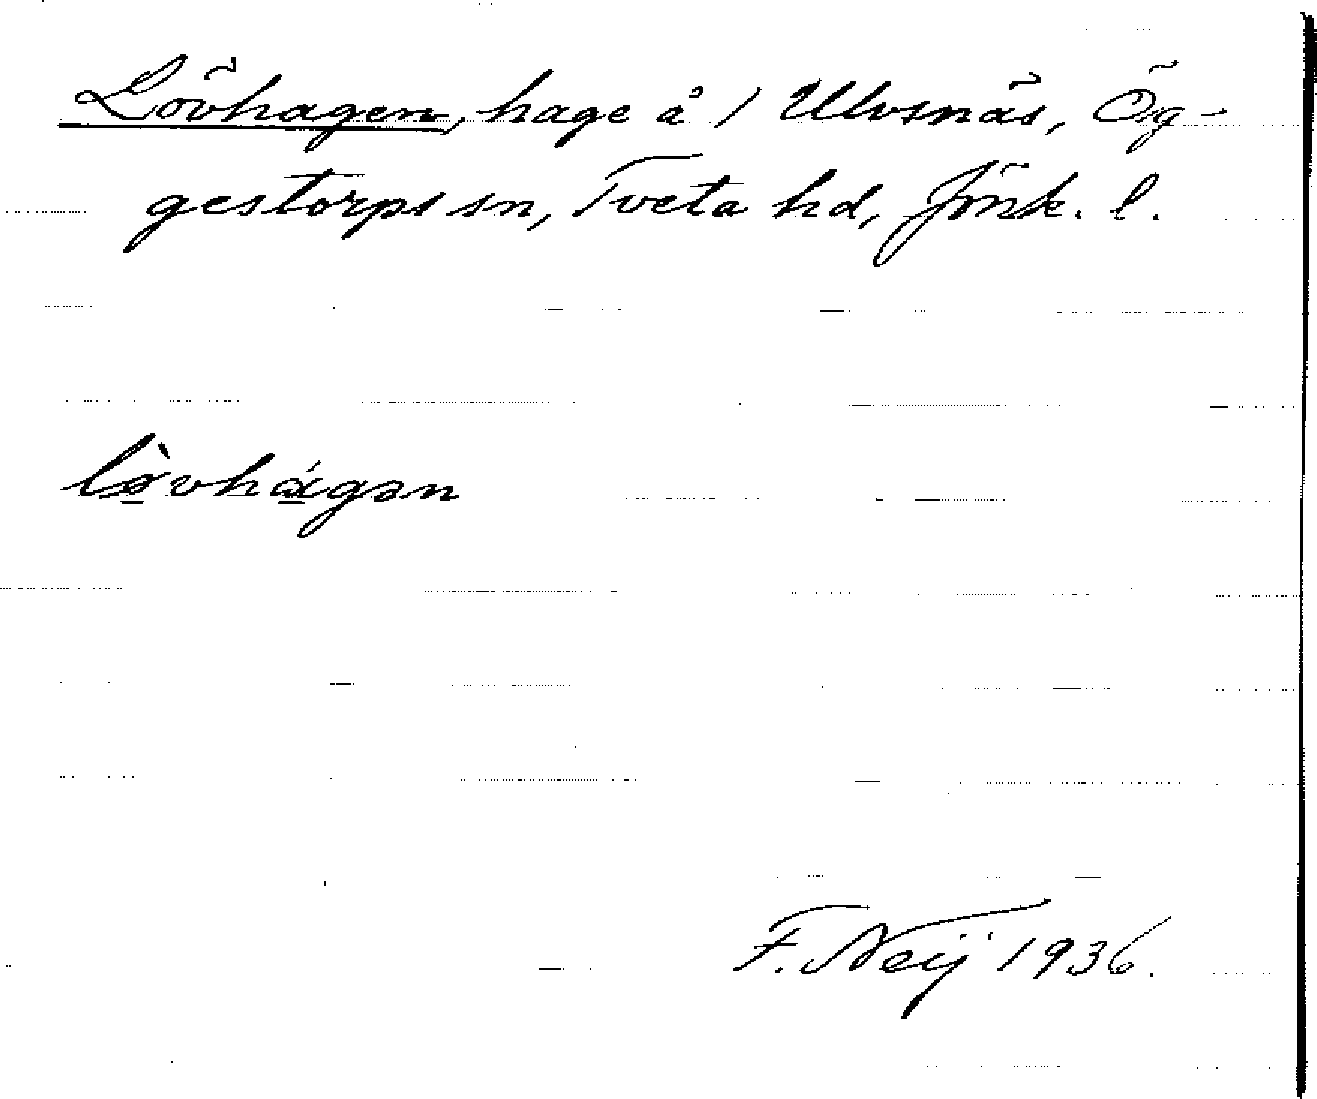 Lövhagen, hage å / Ulvsnäs, Ög-
gestorps sn, Tveta hd, Jönk. l.
lø̀vhágən
F. Neij 1936.